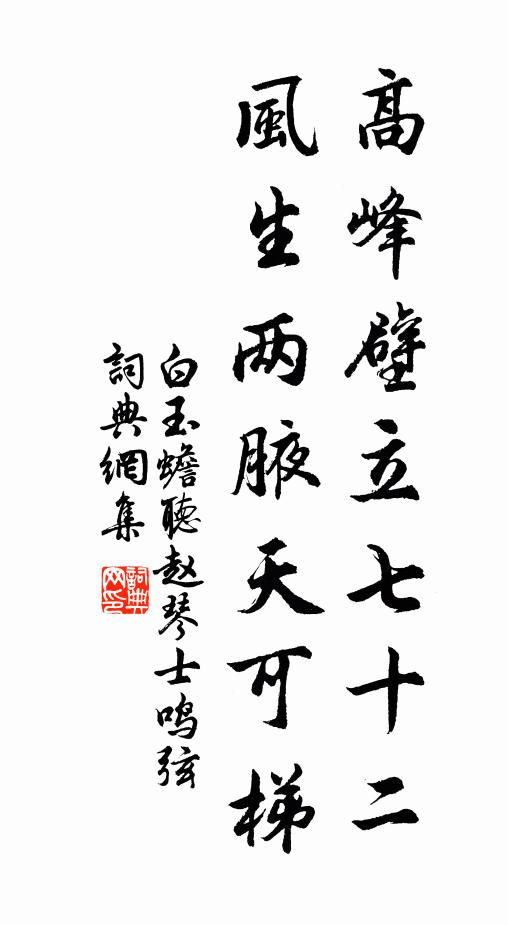 高峰壁立七十二
風生两腋天可梯
白玉蟾聽赵琴士鸣弦
詞典網集
詞典網印